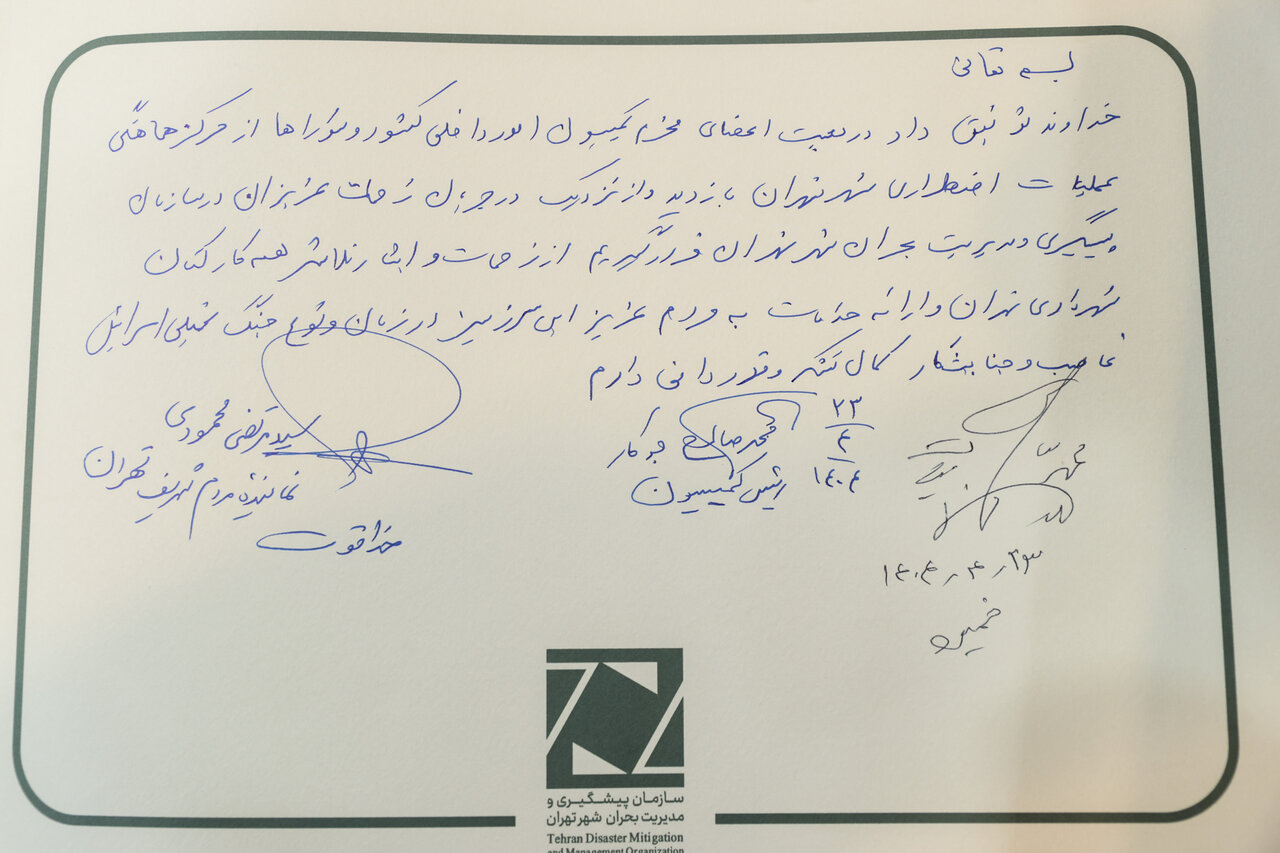 بسمه تعالی
خداوند توفیق داد در معیت اعضای محترم کمیسیون امور داخلی کشور و شوراها از مرکز هماهنگی
عملیات اضطراری شهر تهران بازدید و از نزدیک در جریان زحمات عزیزان در سازمان
پیشگیری و مدیریت بحران شهر تهران قرار گیریم از زحمات و ایثار و تلاش همه کارکنان
شهرداری تهران و ارائه خدمات به مردم عزیز این سرزمین در زمان وقوع جنگ تحمیلی اسرائیل
غاصب و جنایتکار کمال تشکر و قدردانی دارم
۲۳
۴
۱۴۰۴
محمد صالح جوکار
رئیس کمیسیون
سید مرتضی محمودی
نماینده مردم شریف تهران
خدا قوت
۱۴۰۴٫۴٫۲۳
سازمان پیشگیری و
مدیریت بحران شهر تهران
Tehran Disaster Mitigation
and Management Organization